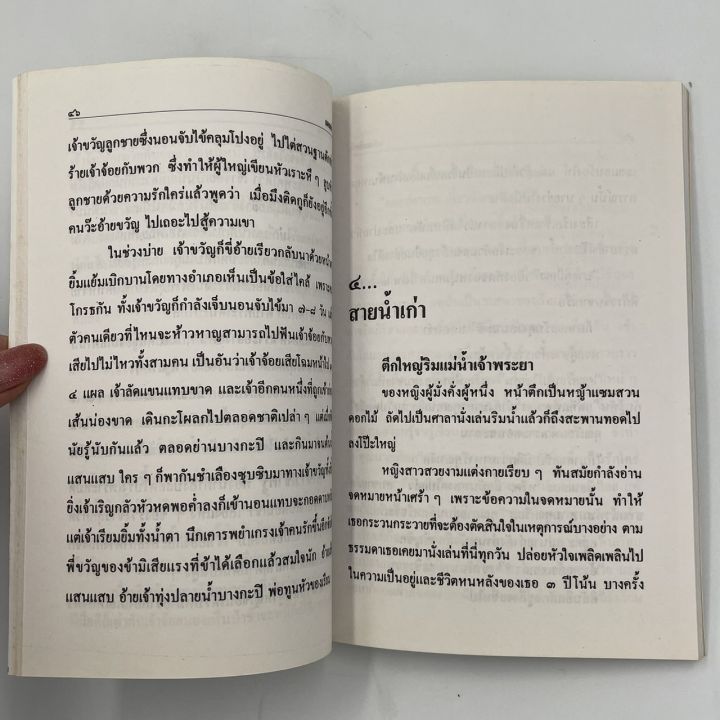 ๔๖
เจ้าขวัญลูกชายซึ่งนอนจับไข้คลุมโปงอยู่ ไปไต่สวนฐานดัก
ร้ายเจ้าจ้อยกับพวก ซึ่งทำให้ผู้ใหญ่เขียนหัวเราะหึ ๆ
ลูกชายด้วยความรักใคร่แล้วพูดว่า เมื่อมึงคิดกูก็ยังอยู่
คนว๊ะอ้ายขวัญ ไปเถอะไปสู้ความเขา
ในช่วงบ่าย เจ้าขวัญก็ขี่อ้ายเรียวกลับนาด้วย
ยิ้มแย้มเบิกบานโดยทางอำเภอเห็นเป็นข้อใส่ไคล้
โกรธกัน ทั้งเจ้าขวัญก็กำลังเจ็บนอนจับไข้มา ๗-๘ วัน
ตัวคนเดียวที่ไหนจะห้าวหาญสามารถไปฟันเจ้าจ้อยกับ
เสียไปไม่ไหวทั้งสามคน เป็นอันว่าเจ้าจ้อยเสียโฉมหน้าไป
๔ แผล เจ้าลัดแขนแทบขาด และเจ้าอีกคนหนึ่งที่ถูก
เส้นน่องขาด เดินกะโผลกไปตลอดชาติเปล่า ๆ
นัยรู้นับกันแล้ว ตลอดย่านบางกะปิ และกินมาจน
แสนแสบ ใคร ๆ ก็พากันชำเลืองซุบซิบมาทางเจ้าขวัญ
ยิ่งเจ้าเริญกลัวหัวหดพอค่ำลงก็เข้านอนแทบจะกอด
แต่เจ้าเรียมยิ้มทั้งน้ำตา นึกเคารพยำเกรงเจ้าคนรักขึ้น
พี่ขวัญของข้ามิเสียแรงที่ข้าได้เลือกแล้วสมใจนัก
แสนแสบ อ้ายเจ้าทุ่งปลายน้ำบางกะปิ พ่อทูนหัวของเรียม
๔...
สายน้ำเก่า
ตึกใหญ่ริมแม่น้ำเจ้าพระยา
ของหญิงผู้มั่งคั่งผู้หนึ่ง หน้าตึกเป็นหญ้าแซมสวน
ดอกไม้ ถัดไปเป็นศาลานั่งเล่นริมน้ำแล้วก็ถึงสะพานทอดไป
ลงโป๊ะใหญ่
หญิงสาวสวยงามแต่งกายเรียบ ๆ ทันสมัยกำลังอ่าน
จดหมายหน้าเศร้า ๆ เพราะข้อความในจดหมายนั้น ทำให้
เธอกระวนกระวายที่จะต้องตัดสินใจในเหตุการณ์บางอย่าง ตาม
ธรรมดาเธอเคยมานั่งเล่นที่นี่ทุกวัน ปล่อยหัวใจเพลิดเพลินไป
ในความเป็นอยู่และชีวิตหนหลังของเธอ ๓ ปีโน้น บางครั้ง